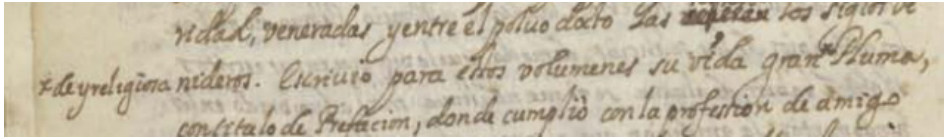 ridad, veneradas y entre el poluo docto las los siglos ve
r de y religiosa nideros. Escriuio para estos volumenes su vida gran Pluma,
con titulo de Prefacion, donde cumplio con la profession de amigo